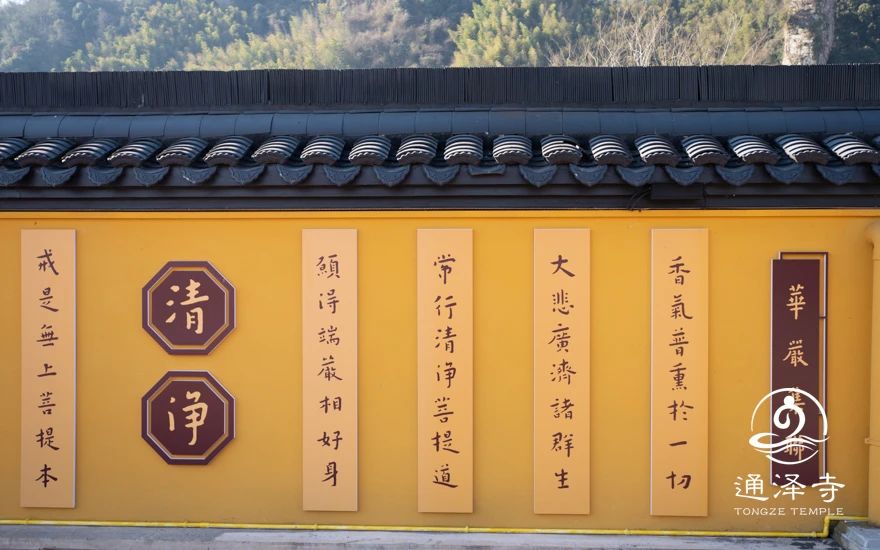 華嚴集聯
香氣普熏於一切
大悲廣濟諸群生
常行清淨菩提道
願得端嚴相好身
清
淨
戒是無上菩提本
通泽寺
TONGZE TEMPLE